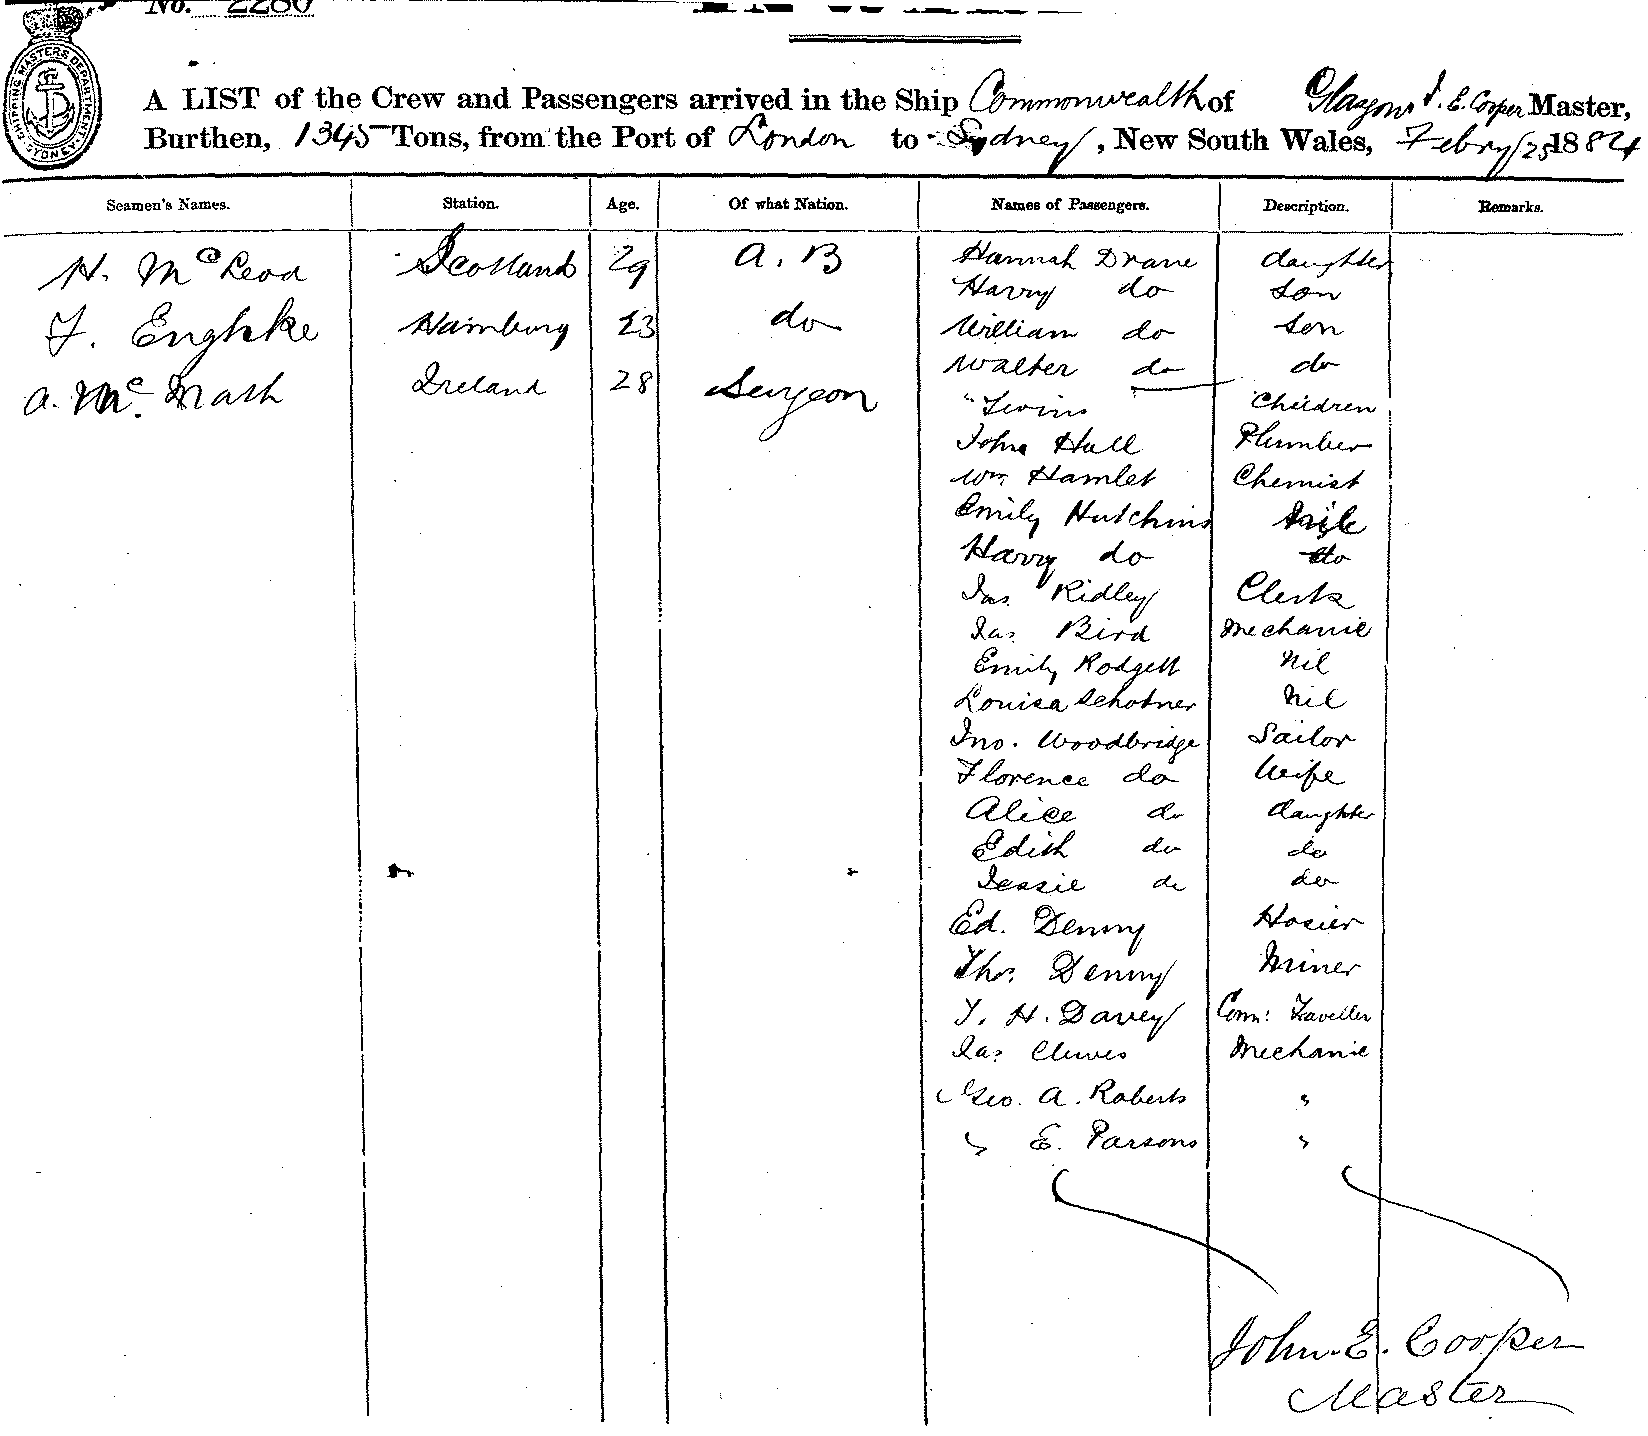 No. 2280
SHIPPING MASTERS DEPARTMENT
A LIST of the Crew and Passengers arrived in the Ship Commonwealth of Glasgow J. E. Cooper Master,
Burthen, 1345 Tons, from the Port of London to Sydney, New South Wales, Febry 25 1884
Seamen's Names. Station. Age. Of what Nation. Names of Passengers. Description. Remarks.
H. McLeod Scotland 29 A. B Hannah Drane daughter
Harry do son
F. Enghke Hamburg 23 do William do son
Walter do do
A. Mc. Ireland 28 Surgeon " Twins Children
John Hall Plumber
Wm. Hamlet Chemist
Emily Hutchins
Harry do do
Jas. Ridley Clerk
Jas. Bird Mechanic
Emily Rodgett Nil
Louisa Schotner Nil
Jno. Woodbridge Sailor
Florence do Wife
Alice do daughter
Edith do do
Jessie do do
Ed. Denny Hosier
Thos. Denny Miner
T. H. Davey Comm: Traveller
Jas. Clewes Mechanic
Geo. A. Roberts "
" E. Parsons "
John. E. Cooper
Master